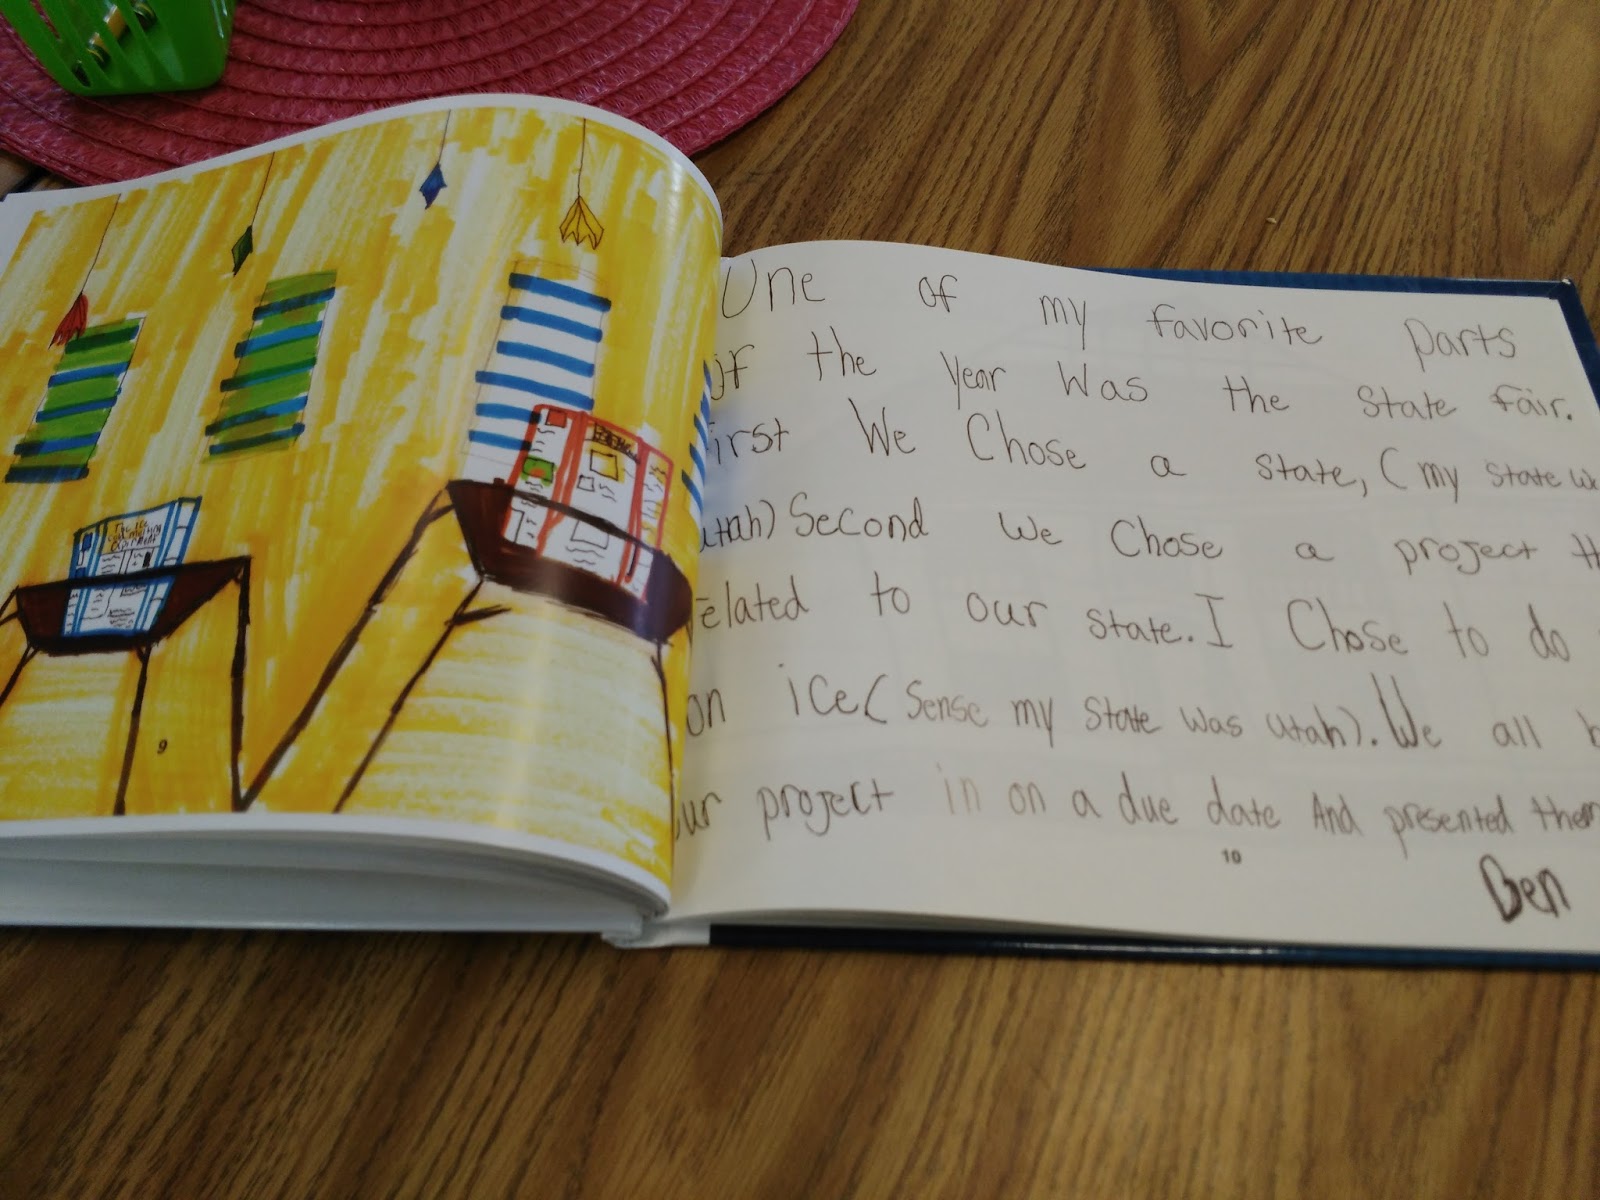 9
One of my favorite parts
of the year was the state fair.
First We Chose a state, (my state
Utah) Second we Chose a project
related to our state. I Chose to do
on ice (Sense my state was Utah). We all
our project in on a due date And presented them
10
Ben